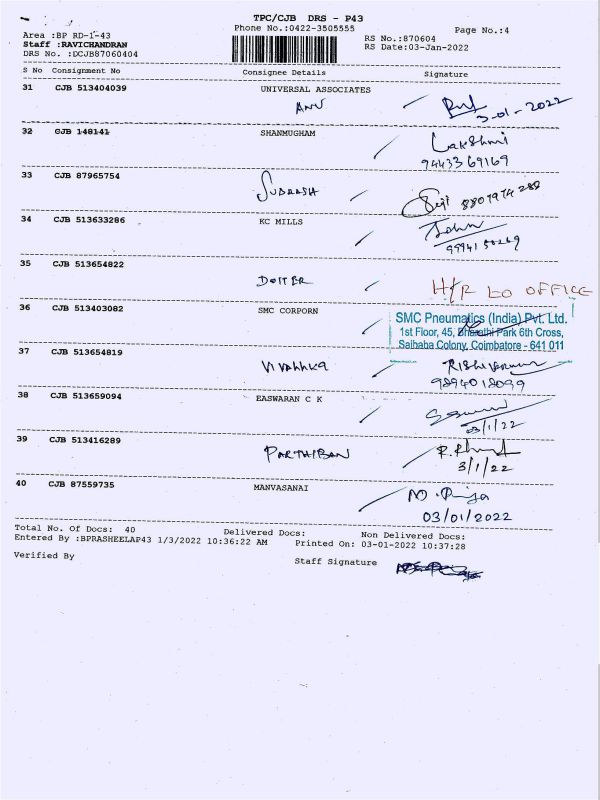 TPC/CJB DRS - P43
Phone No.:0422-3505555
Page No.:4
Area :BP RD-1-43
RS No.:870604
Staff :RAVICHANDRAN
RS Date:03-Jan-2022
DRS No. :DCJB87060404
S No Consignment No Consignee Details Signature
31 CJB 513404039 UNIVERSAL ASSOCIATES
ANU
3-01-2022
32 CJB 148141 SHANMUGHAM
Lakshmi
9443369169
33 CJB 87965754
SUBHASH
34 CJB 513633286 KC MILLS
John
35 CJB 513654822
DOITER H/R to OFFICE
36 CJB 513403082 SMC CORPORN
SMC Pneumatics (India) Pvt. Ltd.
1st Floor, 45, Bharathi Park 6th Cross,
Saibaba Colony, Coimbatore - 641 011
37 CJB 513654819
9894018099
38 CJB 513659094 EASWARAN C K
03/1/22
39 CJB 513416289
PARTHIBAN
3/1/22
40 CJB 87559735 MANVASANAI
03/01/2022
Total No. Of Docs: 40 Delivered Docs: Non Delivered Docs:
Entered By :BPRASHEELAP43 1/3/2022 10:36:22 AM Printed On: 03-01-2022 10:37:28
Verified By Staff Signature